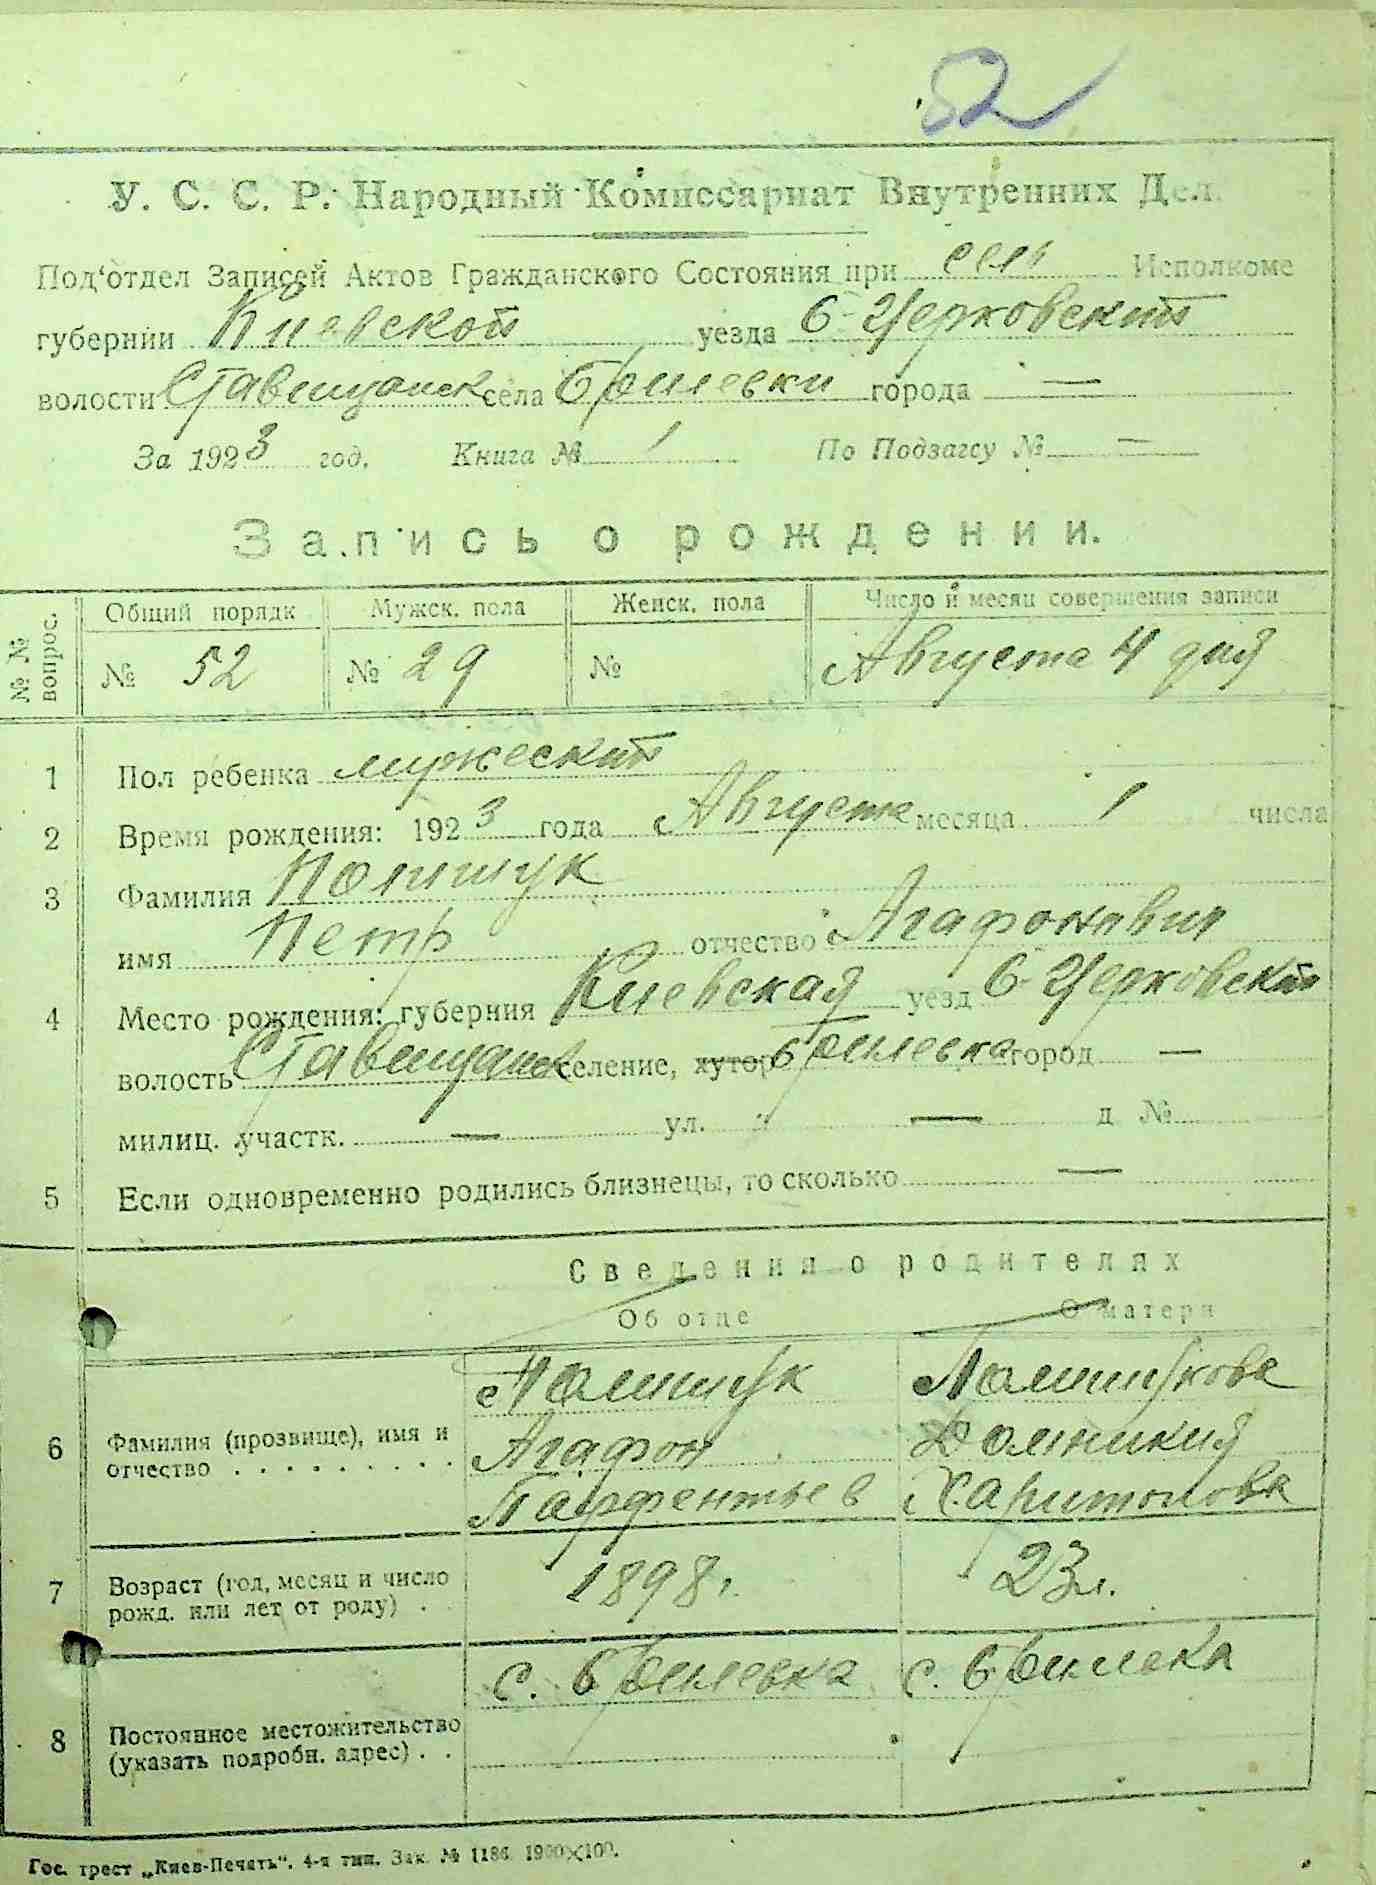 52
У. С. С. Р. Народный Комиссариат Внутренних Дел.
Под'отдел Записей Актов Гражданского Состояния при сель Исполкоме
губернии Киевской уезда Б-Церковский
волости Ставищанск села Брилевки города —
За 1923 год. Книга № 1 По Подзагсу № —
Запись о рождении.
№ № вопрос. Общий порядк Мужск. пола Женск. пола Число и месяц совершения записи
№ 52 № 29 № Августа 4 дня
1 Пол ребенка мужеский
2 Время рождения: 1923 года Августа месяца 1 числа
3 Фамилия Полищук
имя Петр отчество Агафонович
4 Место рождения: губерния Киевская уезд Б-Церковский
волость Ставищанск селение, хутор Брилевка город —
милиц. участк. — ул. — д №
5 Если одновременно родились близнецы, то сколько —
Сведения о родителях
Об отце О матери
Полищук Полищукова
6 Фамилия (прозвище), имя и отчество Агафон Домникия
Парфентьев Харитонова
7 Возраст (год, месяц и число рожд. или лет от роду) 1898 г. 23 л.
с. Брилевка с. Брилевка
8 Постоянное местожительство
(указать подробн. адрес)
Гос. трест „Киев-Печать". 4-я тип. Зак. № 1186 1900×100.